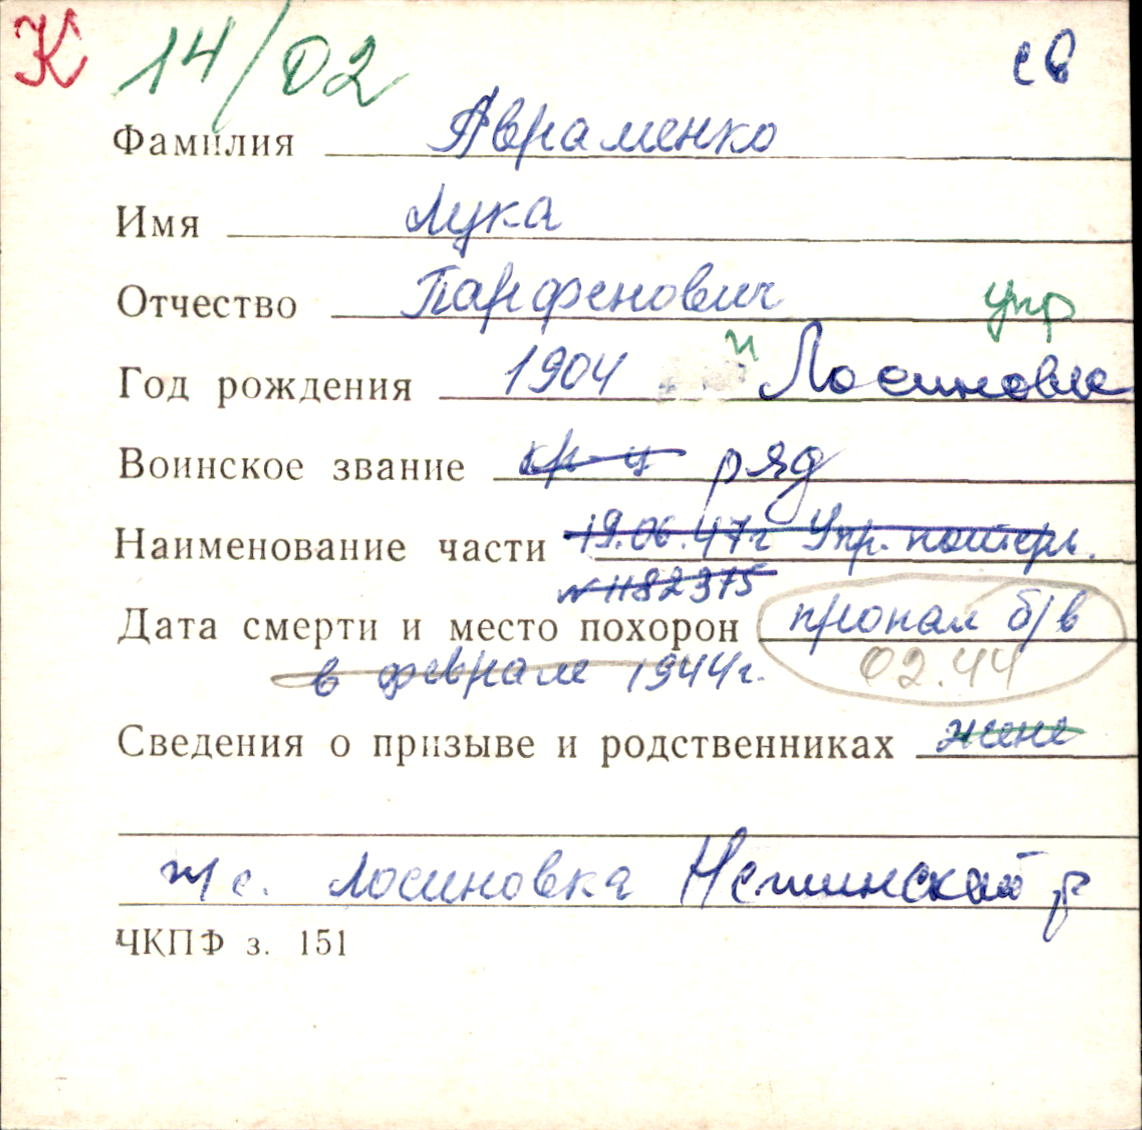 К 14/02 св
Фамилия Авраменко
Имя Лука
Отчество Парфенович упр
Год рождения 1904 Лосиновка
Воинское звание кр-ц ряд
Наименование части 19.06.47г Упр. потерь.
№ 1182375
Дата смерти и место похорон пропал б/в
02.44
в феврале 1944г.
Сведения о призыве и родственниках жене
с. Лосиновка Нежинский р
ЧКПФ з. 151